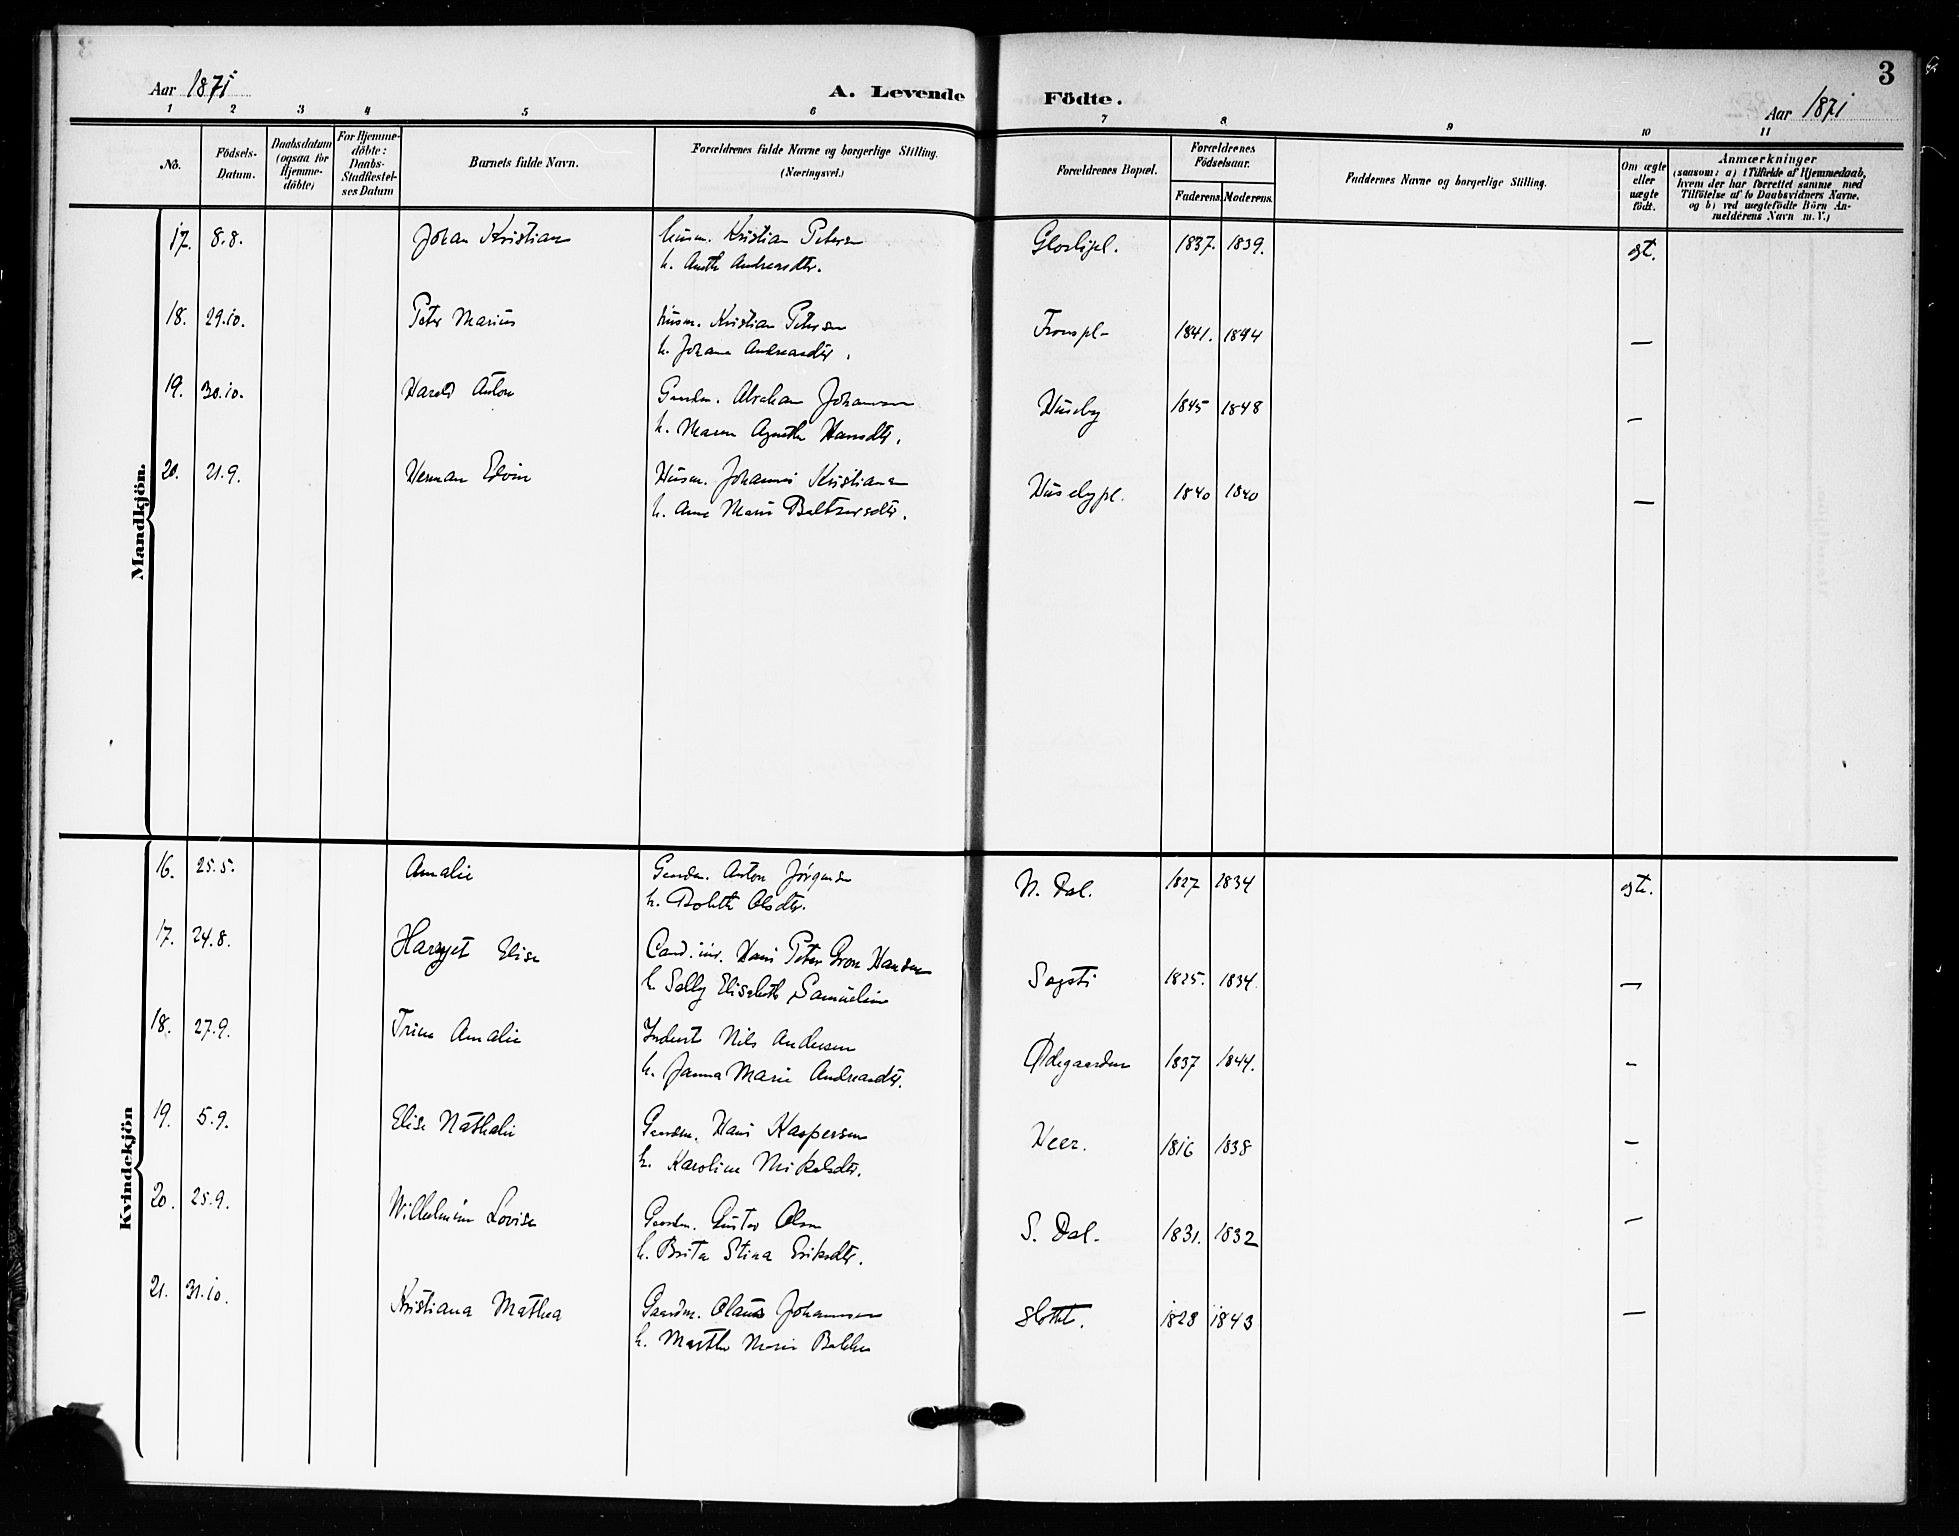 3
Aar 1871
A. Levende Födte.
Aar 1871
1 2 3 4 5 6 7 8 9 10 11
No.
Födsels-Datum.
Daabsdatum (ogsaa for Hjemme-döbte)
For Hjemme-döbte: Daabs-Stadfæstel-ses Datum
Barnets fulde Navn.
Forældrenes fulde Navne og borgerlige Stilling.
(Næringsvei.)
Forældrenes Bopæl.
Forældrenes Födselsaar.
Faderens. Moderens.
Faddernes Navne og borgerlige Stilling.
Om ægte eller uægte födt.
Anmærkninger
(saasom: a) i Tilfælde af Hjemmedaab,
hvem der har forrettet samme med
Tilföielse af to Daabsvidners Navne.
og b) ved uægtefödte Börn An-
melderens Navn m. V.)
Mandkjön.
17. 8.8. Johan Kristian husm. Kristian Petersen Gloslipl. 1837. 1839. egt.
h. Aneth Andreasdtr.
18. 29.10. Peter Marius husm. Kristian Petersen Tronspl- 1841. 1844 —
h. Johane Andreasdtr.
19. 30.10. Harald Anton Gaardm. Abraham Johannesen Huseby 1845 1848 —
h. Maren Agnethe Hansdtr.
20. 21.9. Herman Edvin Husm. Johannes Kristiansen Husebypl. 1840 1840 —
h. Anne Marie Baltzersdtr.
Kvindekjön
16. 25.5. Amalie Gaardm. Anton Jørgensen N. Dal. 1827 1834 egte.
h. Bolethe Olsdtr.
17. 24.8. Harryet Elise Cand. jur. Hans Peter Gron Hansen Sogsti 1825. 1834 —
h. Selly Elisabeth Samueline
18. 27.9. Trine Amalie Inderst Nils Andersen Ødegaarden 1837 1844. —
h. Janna Marie Andreasdtr.
19. 5.9. Elise Nathalie Gaardm. Hans Kaspersen Heer. 1816 1838 —
h. Karoline Mikelsdtr.
20. 25.9. Wilhelmine Lovise Gaardm. Gustav Olsen S. Dal. 1831. 1832 —
h. Brita Stina Eriksdtr.
21. 31.10. Kristiana Mathea Gaardm. Olaus Johannesen Slottet. 1828 1843 —
h. Marthe Marie